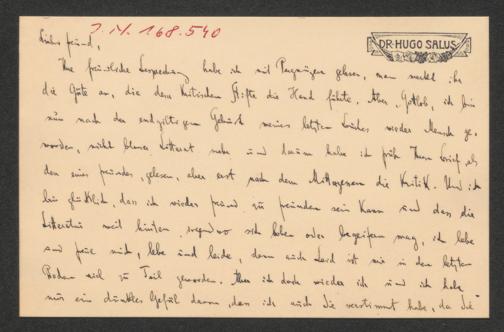 J.N. 168.540
DR. HUGO SALUS
Lieber Freund,
Ihre freundliche Besprechung habe ich mit Vergnügen gelesen, man merkt ihr
die Güte an, die dem kritischen Stifte die Hand führte. Aber, Gottlob, ich bin
nun nach der endgiltigen Geburt meines letzten Buches wieder Mensch ge-
worden, nicht blosser Litterat mehr und darum habe ich früh Ihren Brief als
den eines Freundes, gelesen, aber erst nach dem Mittagessen die Kritik. Und ich
bin glücklich, dass ich wieder Freund zu Freunden sein kann und dass die
Litteratur weit hinten irgendwo sich loben oder begeifern mag, ich lebe
und für mich, lebe und leide, denn auch Leid ist mir in den letzten
zu Teil geworden. Aber ich doch wieder ich und ich habe
nur ein dunkles Gefühl davon, dass ich auch Sie verstimmt habe, da Sie